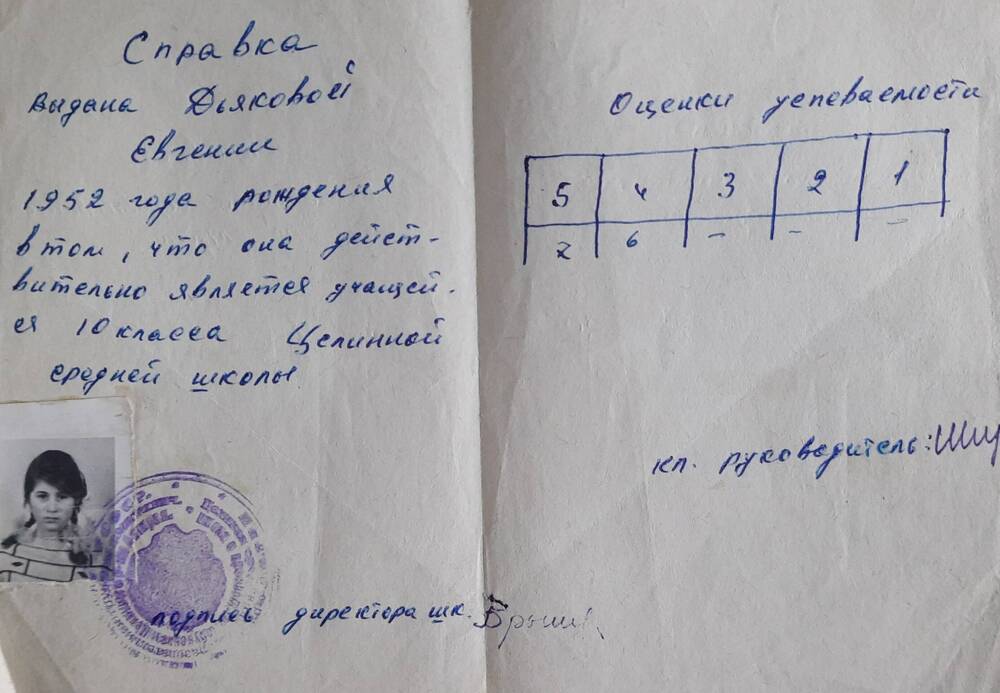 Справка
выдана Дьяковой
Евгении
1952 года рождения
в том, что она дейст-
вительно является учащей-
ся 10 класса Целинной
средней школы
подпись директора шк.
Оценки успеваемости
5 4 3 2 1
7 6 – – –
кл. руководитель: